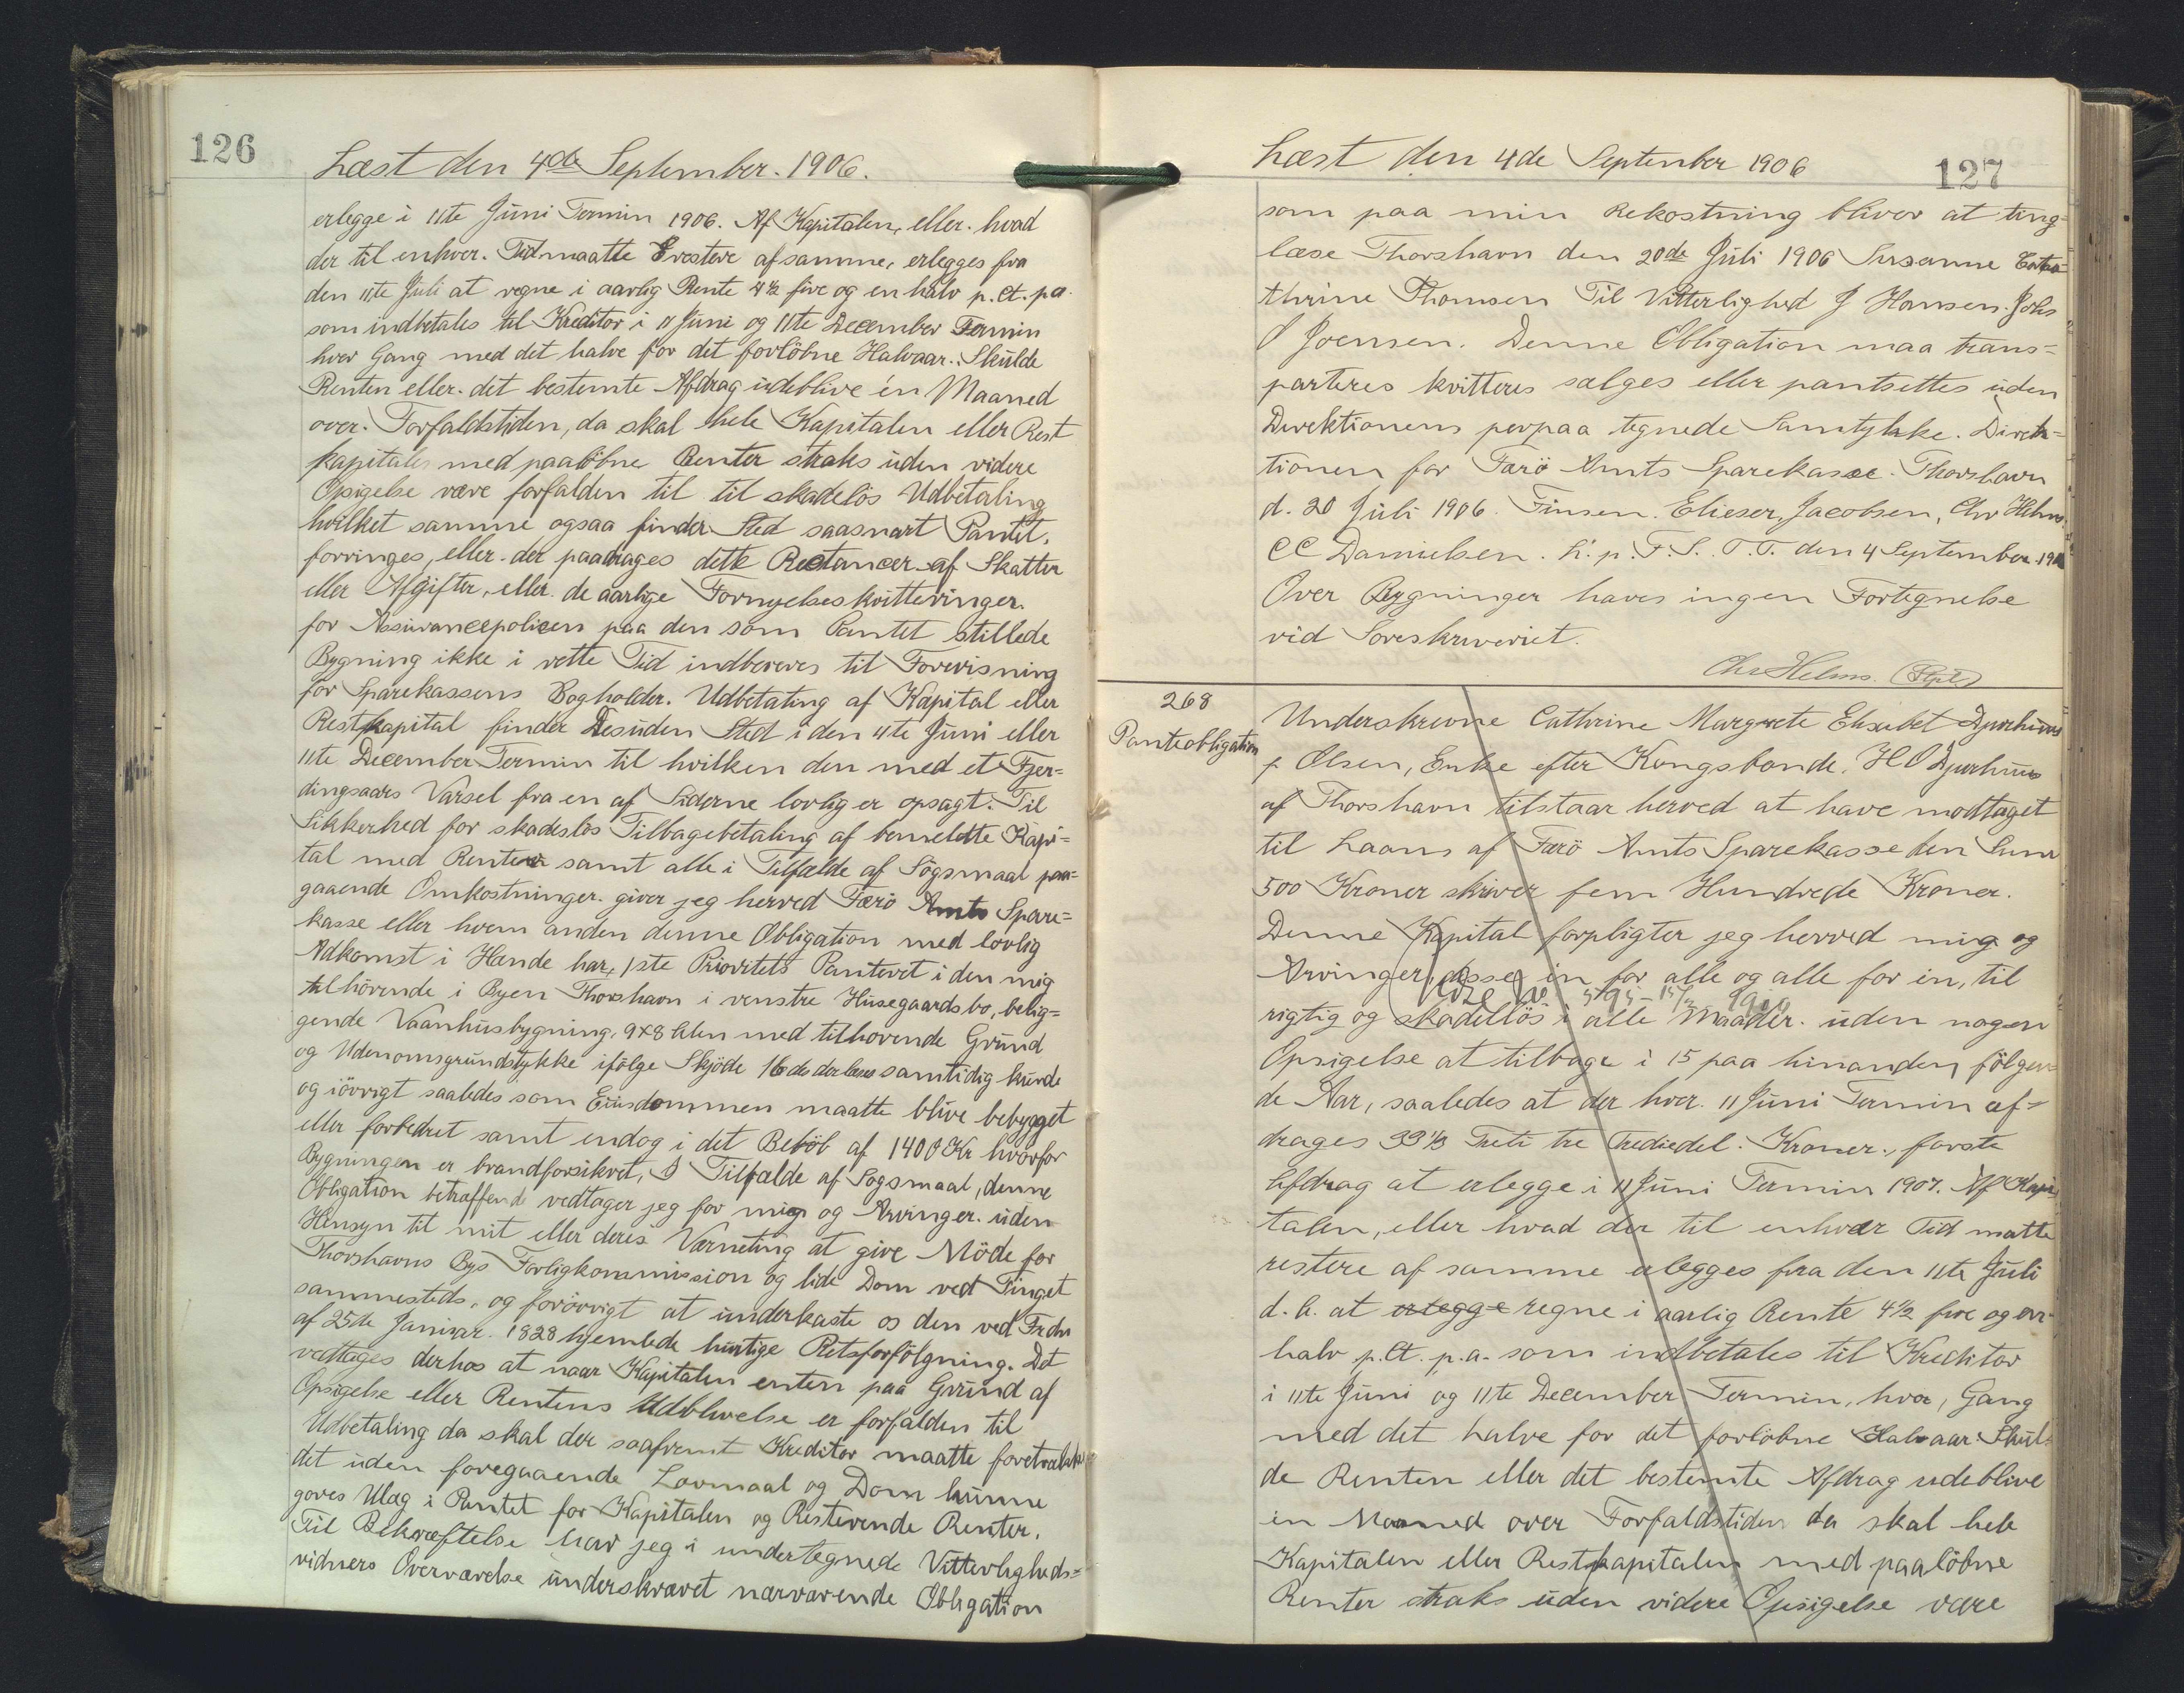 126
Læst den 4de September. 1906.
erlegge i 11te Juni Termin 1906. Af Kapitalen, eller. hvad
der til enhver. Tid maatte Erestere af samme, erlegges fra
den 11te Juli at regne i aarlig Rente 4½ fire og en halv p.Ct. p.a.
som indbetales til Kreditor i 11 Juni og 11te December Termin
hver Gang med det halve for det forlöbne Halvaar. Skulde
Renten eller. det bestemte Afdrag udeblive én Maaned
over. Forfaldstiden, da skal hele Kapitalen eller Rest
kapitalen med paalöbne Renter straks uden videre
Opsigelse være forfalden til til skadelös Udbetaling
hvilket samme ogsaa finder Sted saasnart Pantet,
forringes, eller. der paadrages dette Restancer af Skatter
eller Afgifter, eller. de aarlige Fornyelseskvitteringer.
for Assurancepolicen paa den som Pantet stillede
Bygning ikke i rette Tid indleveres til Forevisning
for Sparekassens Bogholder. Udbetaling af Kapital eller
Restkapital finder Desuden Sted i den 11te Juni eller
11te December Termin til hvilken den med et Fjer=
dingsaars Varsel fra en af Siderne lovlig er opsagt. Til
Sikkerhed for skadeslös Tilbagebetaling af bemeldte Kapi=
tal med Renter samt alle i Tilfælde af Sögsmaal paa=
gaaende Omkostninger. giver jeg herved Færö Amts Spare=
kasse eller hvem anden denne Obligation med lovlig
Adkomst i Hænde har, 1ste Prioritets Panteret i den mig
tilhörende i Byen Thorshavn i venstre Husegaardsbo, belig=
gende Vaanhusbygning, 9x8 Alen med tilhorende Grund
og Udenomsgrundstykke ifölge Skjöde 16 ds der læses samtidig hermed
og iövrigt saaledes som Eiendommen maatte blive bebygget
eller forbedret samt endog i det Belöb af 1400 Kr hvorfor
Bygningen er brandforsikret, I Tilfælde af Sogsmaal, denne
Obligation betræffende vedtager jeg for mig og Arvinger. uden
Hensyn til mit eller deres Værneting at give Möde for
Thorshavns Bys Forligkommission og lide Dom ved Tinget
sammesteds, og forövrigt at underkaste os den ved Frdn
af 25de Januar. 1828 hjemlede hurtige Retsforfölgning. Det
vedtages derhos at naar Kapitalen enten paa Grund af
Opsigelse eller Rentens Udeblivelse er forfalden til
Udbetaling da skal der saafremt Kreditor maatte foretrække
det uden foregaaende Lovmaal og Dom kunne
gøres Udlæg i Pantet for Kapitalen og Resterende Renter.
Til Bekræftelse har jeg i undertegnede Vitterligheds=
vidners Overværelse underskrevet nærværende Obligation
127
Læst den 4de September 1906
som paa min Bekostning bliver at ting=
læse Thorshavn den 20de Juli 1906 Susanne Catha=
thrine Thomsen Til Vitterlighed J Hansen. Johs
O Joensen. Denne Obligation maa trans=
porteres kvitteres sælges eller pantsettes uden
Direktionens perpaa tegnede Samtykke. Direk=
tionen for Færö Amts Sparekasse. Thorshavn
d. 20 Juli 1906. Finsen. Elieser, Jacobsen, Chr Helms.
CC Danielsen. L. p. F. S. O. T. den 4 September 190
Over Bygninger haves ingen Fortegnelse
vid Soreskriveriet.
Chr Helms. (Fgt.)
268
Panteobligation
Underskrevne Cathrine Margrete Elisabet Djurhuus
f Olsen, Enke efter Kongsbonde. H O Djurhuus
af Thorshavn tilstaar herved at have modtaget
til Laans af Færö Amts Sparekasse den Sum
500 Kroner skriver fem Hundrede Kroner.
Denne Kapital forpligter jeg herved mig og
Arvinger, disse en for alle og alle for en, til
rigtig og skadeslös i alle Maader. uden nogen
Opsigelse at tilbage i 15 paa hinanden fölgen=
de Aar, saaledes at der hver. 11 Juni Termin af=
drages 33⅓ Treti tre Trediedel. Kroner., forste
Afdrag at erlegge i 11 Juni Termin 1907. Af Kapi
talen, eller hvad der til enhver Tid matte
restere af samme erlegges fra den 11te Juli
d.A. at erlegge regne i aarlig Rente 4½ fire og en
halv p.Ct. p.a. som indbetales til Kreditor
i 11te Juni og 11te December Termin, hver, Gang
med det halve for det forlöbne Halvaar Skul=
de Renten eller det bestemte Afdrag udeblive
en Maaned over Forfaldstiden da skal hele
Kapitalen eller Restkapitalen med paalöbne
Renter straks uden videre Opsigelse være